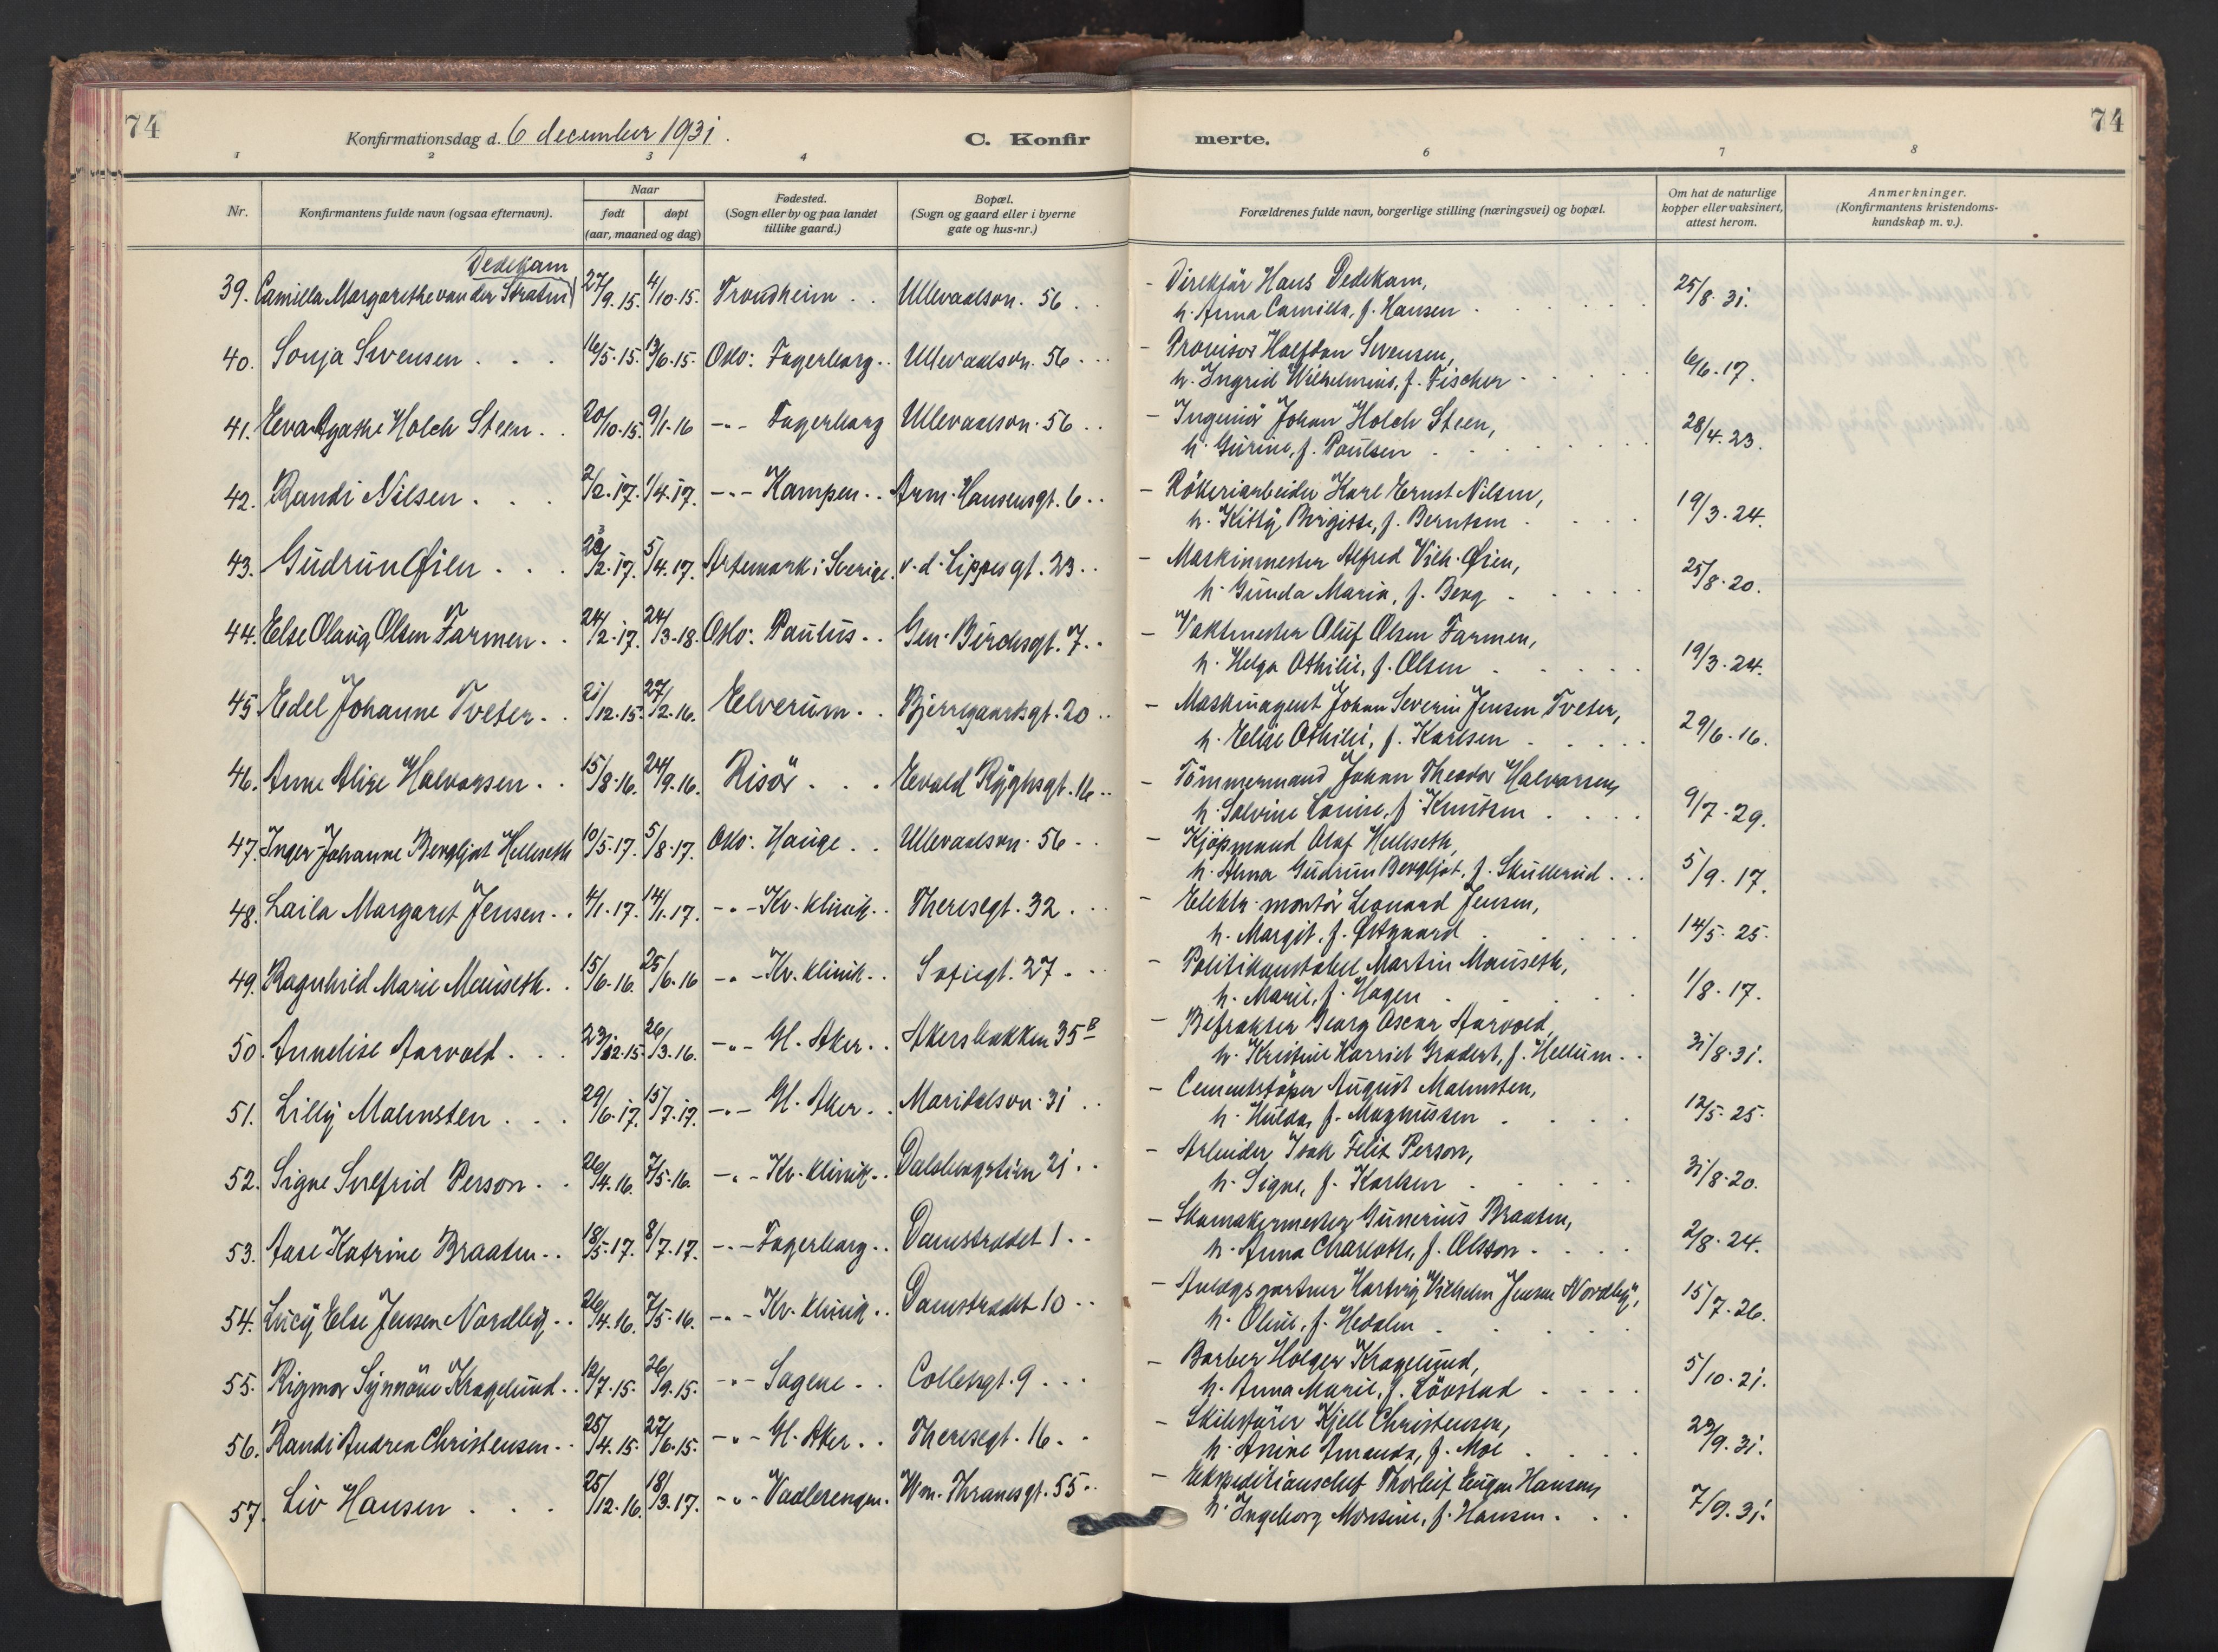 74
Konfirmationsdag d. 6 december 1931.
C. Konfirmerte.
74
1 2 3 4 6 7 8
Nr.
Konfirmantens fulde navn (ogsaa efternavn).
Naar
født døpt
(aar, maaned og dag)
Fødested.
(Sogn eller by og paa landet
tillike gaard.)
Bopæl.
(Sogn og gaard eller i byerne
gate og hus-nr.)
Forældrenes fulde navn, borgerlige stilling (næringsvei) og bopæl.
Om hat de naturlige
kopper eller vaksinert,
attest herom.
Anmerkninger.
(Konfirmantens kristendoms-
kundskap m. v.).
Dedekam
39. Camilla Margarethe van der Straten 27/9.15. 4/10.15. Trondheim . . Ullevaalsvn. 56 . . - Direktør Hans Dedekam,
h. Anna Camilla, f. Hansen 25/8.31.
40. Sonja Svensen . . . 16/5.15. 13/6.15. Oslo: Fagerborg . . Ullevaalsvn. 56 . . - Provisor Halfdan Svensen,
h. Ingrid Wilhelmine, f. Fischer 6/6.17.
41. Eeva Agathe Holch Steen . . 20/10.15. 9/1.16 -"- Fagerborg Ullevaalsvn. 56 . . - Ingeniør Johan Holch Steen,
h. Gurine, f. Paulsen 28/4.23.
42. Randi Nilsen . . . 2/2.17. 1/4.17. -"- Kampen . . Arm. Hansensgt. 6 . . - Rökeriarbeider Karl Ernst Nilsen,
h. Kitty Birgitte, f. Berntsen 19/3.24.
43. Gudrun Øien . . . 2/2.17. 5/4.17. Artemark i Sverige. v. d. Lippesgt. 23 . . - Maskinmester Alfred Vilh. Øien,
h. Gunda Maria, f. Berg 25/8.20.
44. Else Olaug Olsen Farmen . . 24/2.17. 24/3.18. Oslo: Paulus . . Gen. Birchsgt. 7 . . - Vaktmester Oluf Olsen Farmen,
h. Helga Othilie, f. Olsen 19/3.24.
45. Edel Johanne Tveter . . 21/12.15. 27/2.16. Elverum . . Bjerregaardsgt. 20 . . - Maskinagent Johan Severin Jensen Tveter,
h. Elise Othilie, f. Karlsen 29/6.16.
46. Anne Alise Halvorsen . . 15/8.16. 24/9.16. Risör . . . Evald Ryghsgt. 16 . . - Tömmermand Johan Theodor Halvorsen,
h. Salvine Louise, f. Knutsen 9/7.29.
47. Inger-Johanne Bergljot Helliseth 10/5.17. 5/8.17. Oslo: Hauge . . Ullevaalsvn. 56 . . - Kjöpmand Olaf Helliseth,
h. Alma Gudrun Bergljot, f. Skullerud . . . 5/9.17.
48. Laila Margaret Jensen . . 4/1.17. 14/1.17. -"- Kv. klinik . . Theresegt. 32 . . - Elektr. montör Leonard Jensen,
h. Margit, f. Østgaard 14/5.25.
49. Ragnhild Marie Mauseth . . 15/6.16. 25/6.16 -"- Kv. klinik . . Sofiegt. 27 . . - Politikonstabel Martin Mauseth,
h. Marie, f. Hagen 1/8.17.
50. Annelise Aarvold . . . 23/12.15 26/3.16. -"- Gl. Aker . . Akersbakken 35 B - Befrakter Georg Oscar Aarvold,
h. Kristine Harriet Gradert, f. Hellum . . 31/8.31.
51. Lilly Malmsten . . . 29/6.17. 15/7.17. -"- Gl. Aker . . Maridalsvn. 31 . . - Cementstöper August Malmsten,
h. Hulda, f. Magnussen 12/5.25.
52. Signe Solfrid Person . . 26/4.16. 7/5.16. -"- Kv. klinik . . Dalsbergstien 21 . . - Arbeider Isak Felix Person,
h. Signe, f. Karlsen 31/8.20.
53. Aase Katrine Braaten . . 18/5.17. 8/7.17. -"- Fagerborg . . Damstrædet 1 . . - Skomakermester Gunerius Braaten,
h. Anna Charlotte, f. Olsson 2/8.24.
54. Lucy Else Jensen Nordby . . 26/4.16. 7/5.16. -"- Kv. klinik . . Damstrædet 10 . . - Anlægsgartner Hartvig Vilhelm Jensen Nordby,
h. Oline, f. Hedalen 15/7.26.
55. Rigmor Synnöve Kragelund . . 12/7.15. 26/9.15. -"- Sagene . . Collettsgt. 9 . . . - Barber Holger Kragelund,
h. Anna Marie, f. Lövstad 5/10.21.
56. Randi Andrea Christensen . . 25/4.15. 27/6.15. -"- Gl. Aker . . Theresegt. 16 . . - Skibsförer Kjell Christensen,
h. Amanda, f. Moe 23/9.31.
57. Liv Hansen . . . 25/12.16. 18/3.17. -"- Vaalerengen. Wm. Thranesgt. 55 . . - Ekspeditionschef Thorleif Eugen Hansen,
h. Ingeborg Monsine, f. Hansen . . . 7/9.31.